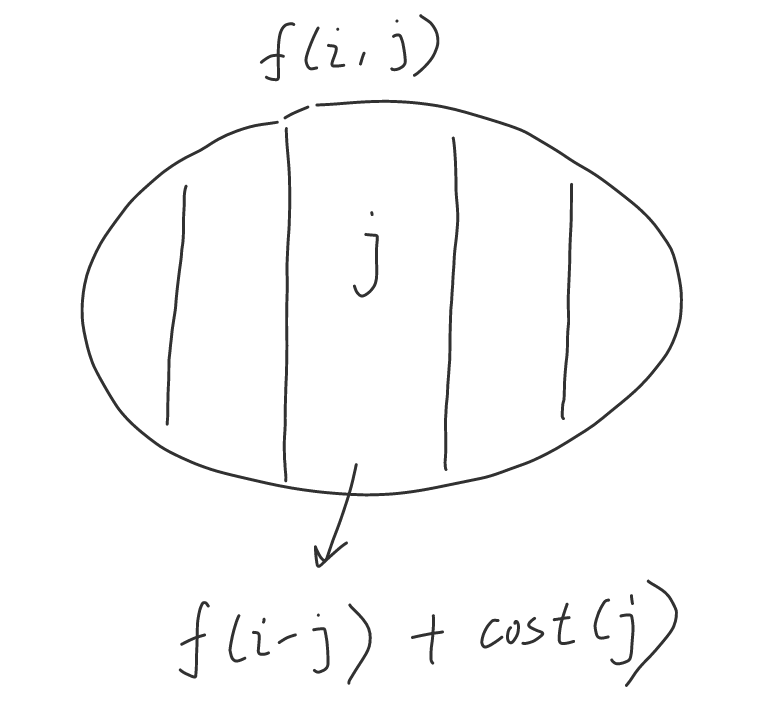 f(i, j)
j
f(i-j) + cost(j)